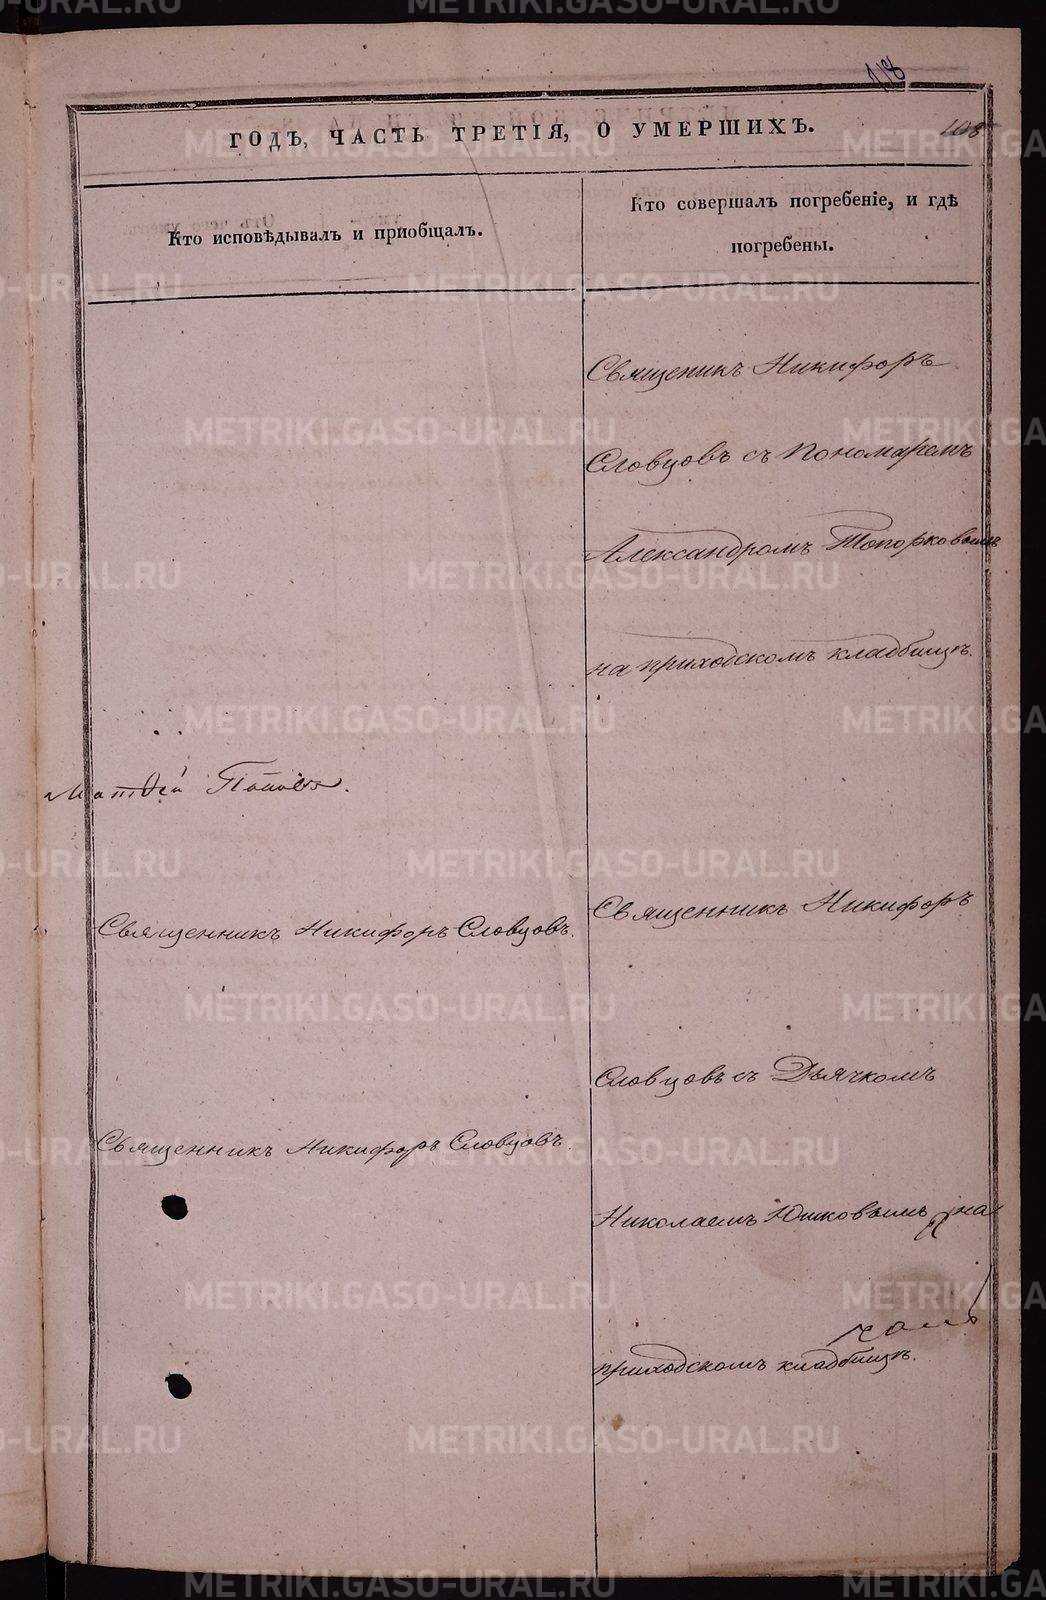 118
108
ГОДЪ, ЧАСТЬ ТРЕТІЯ, О УМЕРШИХЪ.
Кто исповѣдывалъ и пріобщалъ.
Кто совершалъ погребеніе, и гдѣ
погребены.
Священикъ Никифоръ
Словцовъ съ Пономаремъ
Александромъ Топорковымъ
на приходскомъ кладбищѣ.
Матвѣй Поповъ.
Священникъ Никифоръ Словцовъ.
Священникъ Никифоръ
Словцовъ съ Дьячкомъ
Священникъ Никифоръ Словцовъ.
Николаемъ Юшковымъ на
приходскомъ кладбищѣ.
METRIKI.GASO-URAL.RU